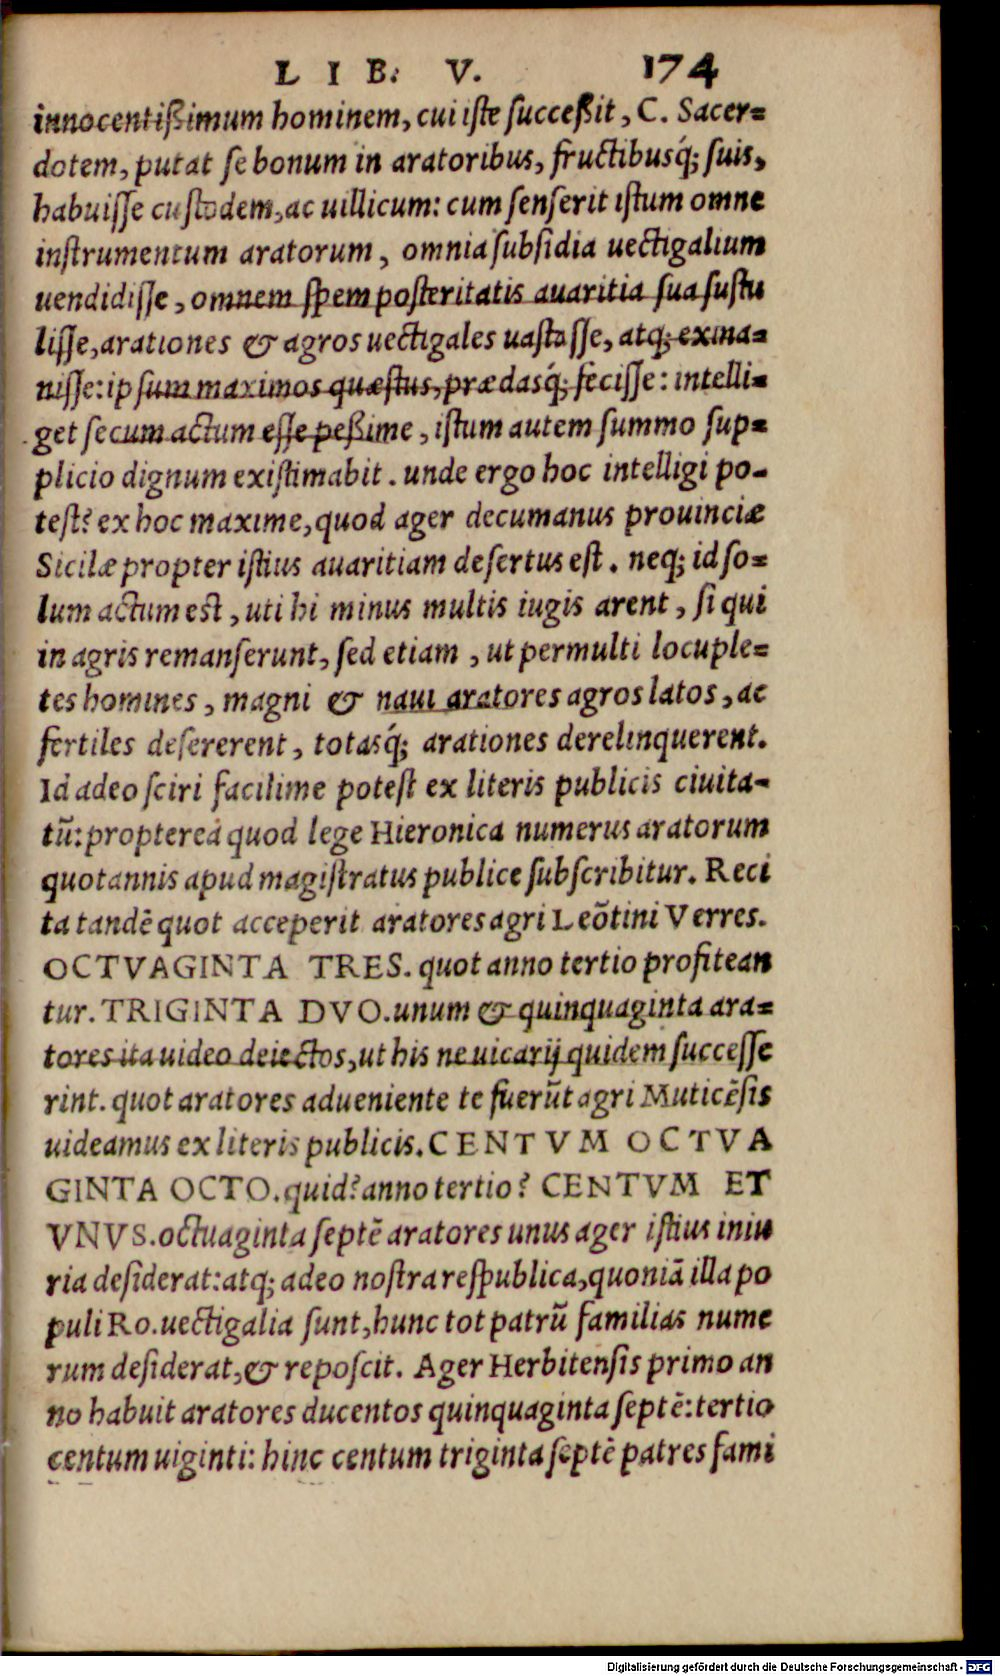 LIB. V. 174
innocentißimum hominem, cui iſte ſucceßit, C. Sacer=
dotem, putat ſe bonum in aratoribus, fructibusq́; ſuis,
habuiſſe cuſtodem, ac uillicum: cum ſenſerit iſtum omne
inſtrumentum aratorum, omnia ſubſidia uectigalium
uendidiſſe, omnem ſpem poſteritatis auaritia ſua ſuſtu
liſſe, arationes & agros uectigales uaſtaſſe, atq; exina=
niſſe: ipſum maximos quæſtus, prædasq́; feciſſe: intelli=
get ſecum actum eſſe peßime, iſtum autem ſummo ſup=
plicio dignum exiſtimabit. unde ergo hoc intelligi po-
teſt? ex hoc maxime, quod ager decumanus prouinciæ
Sicilæ propter iſtius auaritiam deſertus eſt. neq; id ſo=
lum actum est, uti hi minus multis iugis arent, ſi qui
in agris remanſerunt, ſed etiam, ut permulti locuple=
tes homines, magni & naui aratores agros latos, ac
fertiles deſererent, totasq́; arationes derelinquerent.
Id adeo ſciri facilime poteſt ex literis publicis ciuita-
tū: propterea quod lege Hieronica numerus aratorum
quotannis apud magiſtratus publice ſubſcribitur. Reci
ta tandē quot acceperit aratores agri Leōtini Verres.
OCTVAGINTA TRES. quot anno tertio profitean
tur. TRIGINTA DVO. unum & quinquaginta ara=
tores ita uideo deiectos, ut his ne uicarij quidem ſucceſſe
rint. quot aratores adueniente te fuerūt agri Muticēſis
uideamus ex literis publicis. CENTVM OCTVA
GINTA OCTO. quid? anno tertio? CENTVM ET
VNVS. octuaginta ſeptē aratores unus ager iſtius iniu
ria deſiderat: atq; adeo noſtra reſpublica, quoniā illa po
puli Ro. uectigalia ſunt, hunc tot patrū familias nume
rum deſiderat, & repoſcit. Ager Herbitenſis primo an
no habuit aratores ducentos quinquaginta ſeptē: tertio
centum uiginti: hinc centum triginta ſeptē patres fami
Digitalisierung gefördert durch die Deutsche Forschungsgemeinschaft - DFG